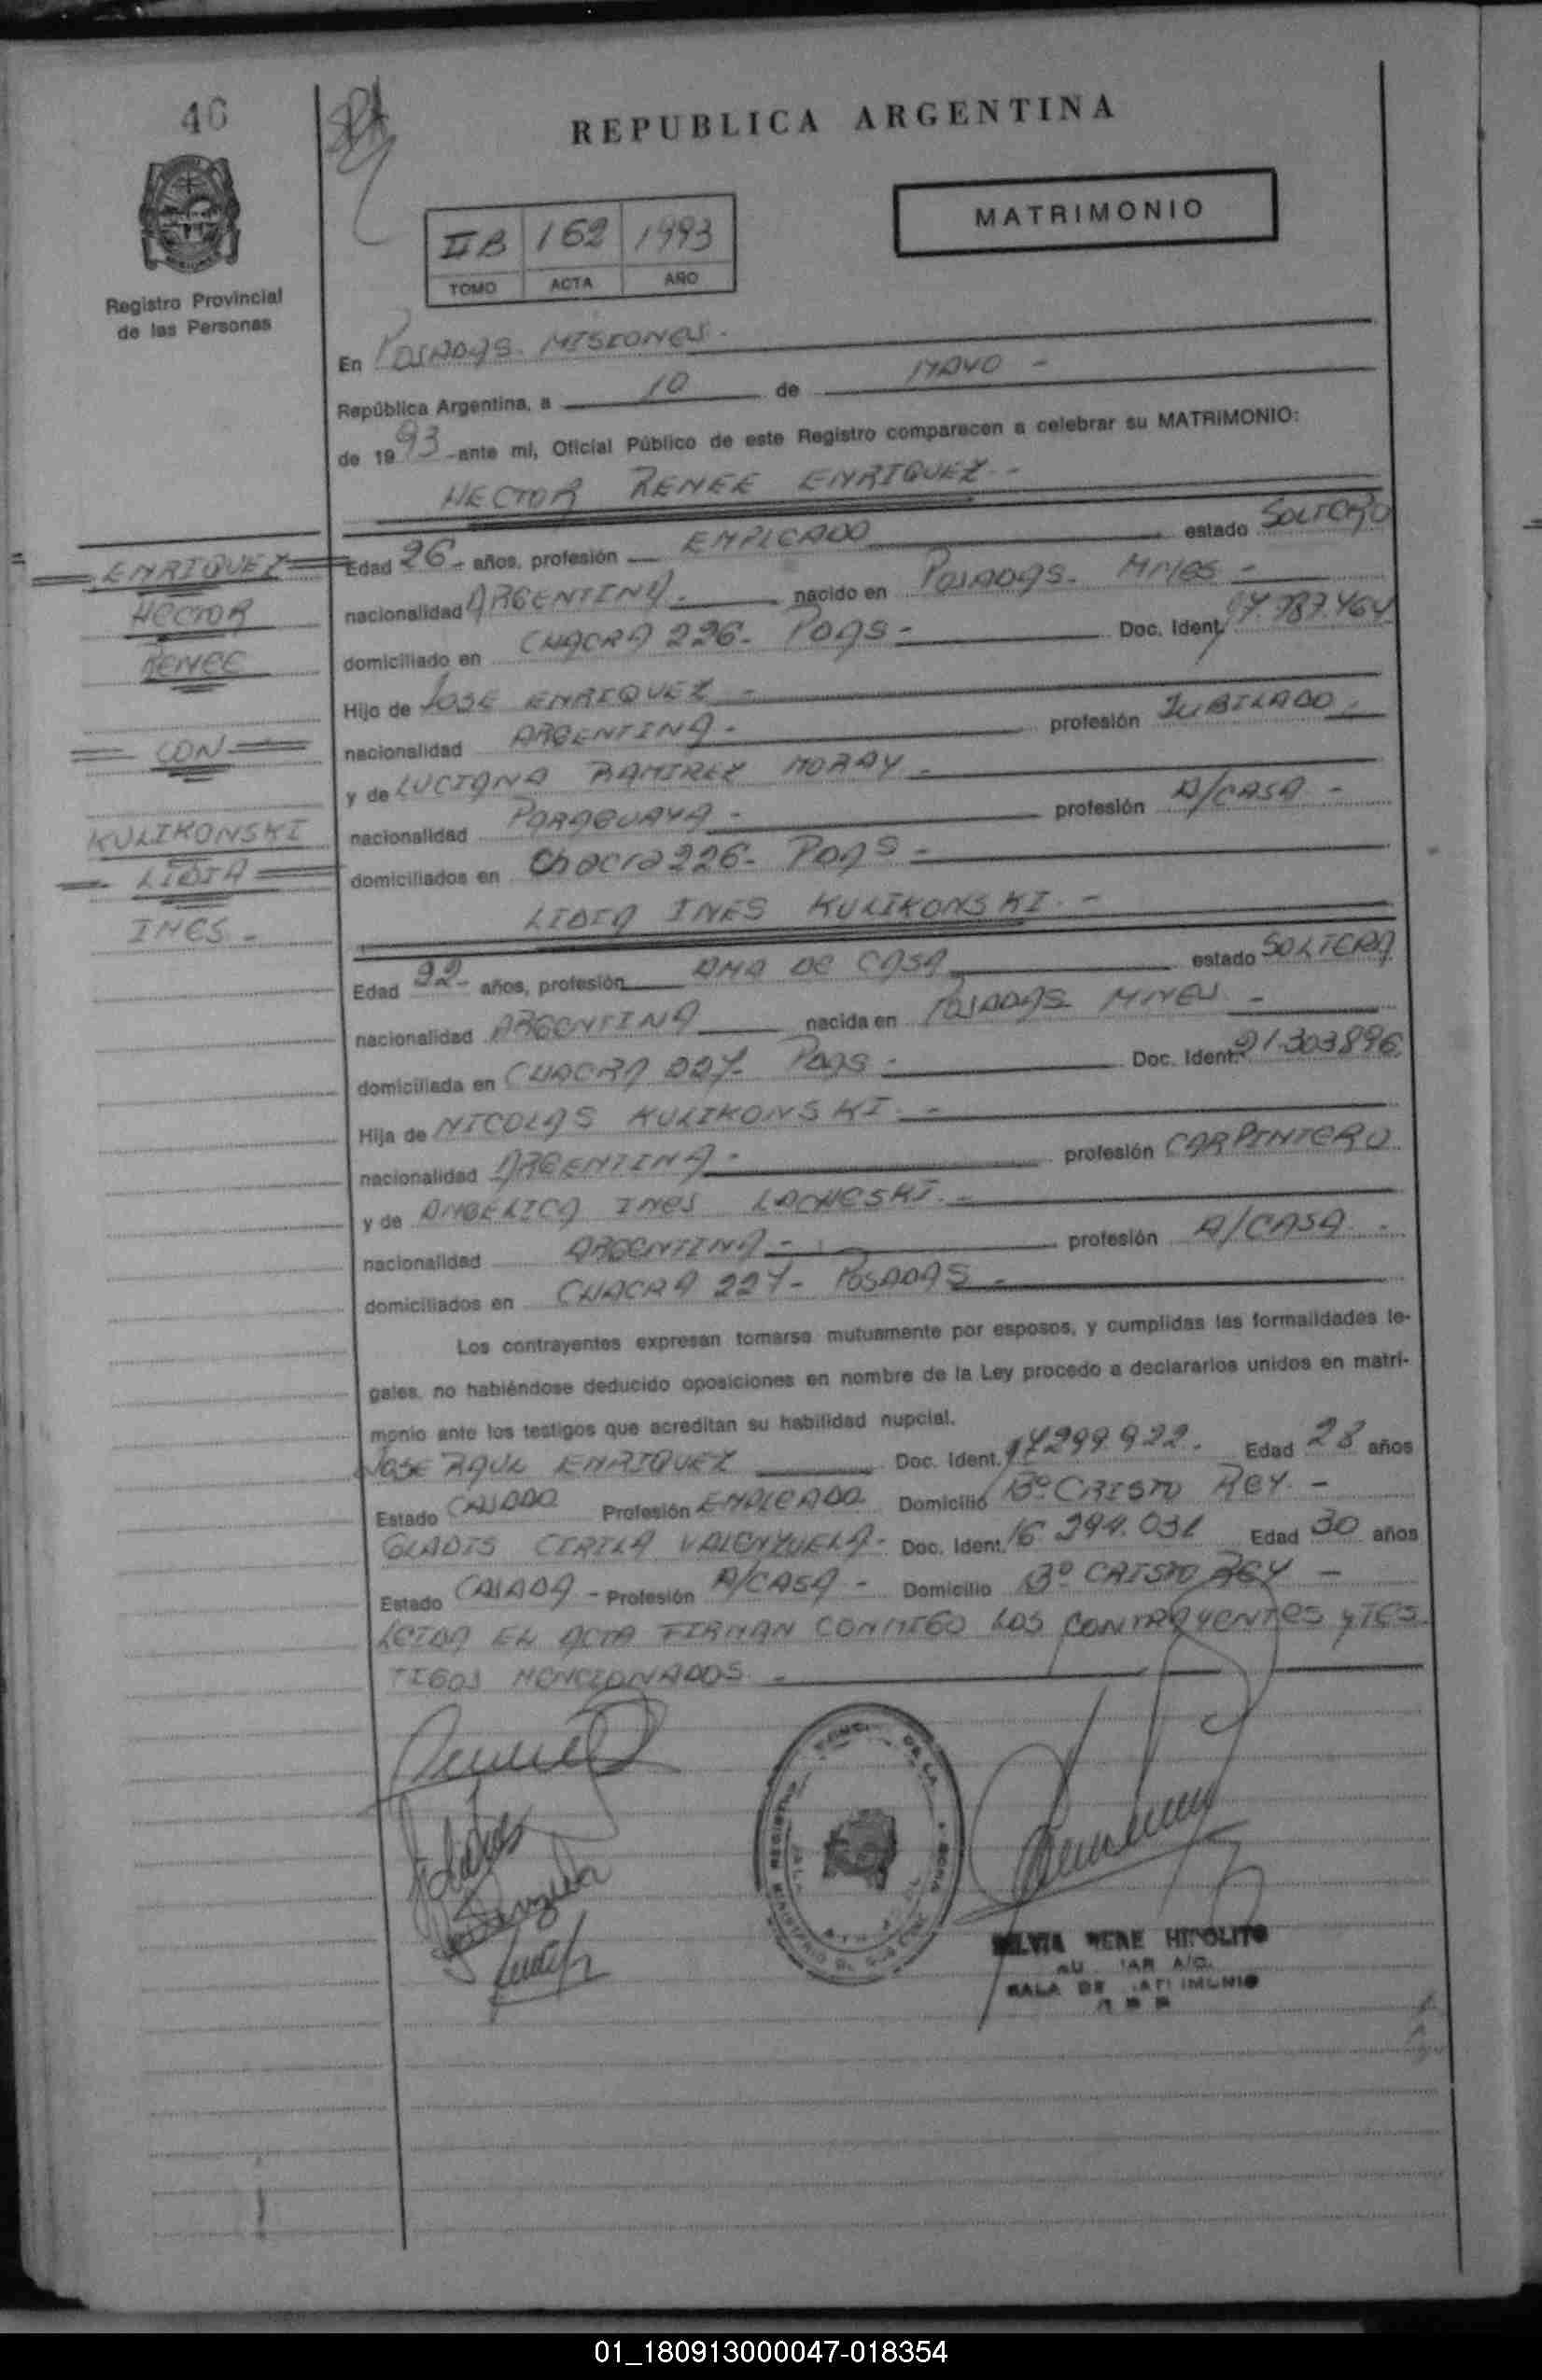 46
REPUBLICA ARGENTINA
MATRIMONIO
IIB 162 1993
TOMO ACTA AÑO
Registro Provincial
de las Personas
En POSADAS. MISIONES.
República Argentina, a 10 de MAYO -
de 1993 -ante mi, Oficial Público de este Registro comparecen a celebrar su MATRIMONIO:
HECTOR RENEE ENRIQUEZ.-
ENRIQUEZ
HECTOR
RENEE
CON
KULIKONSKI
LIDIA
INES -
Edad 26- años, profesión EMPLEADO estado SOLTERO
nacionalidad ARGENTINA.- nacido en POSADAS. MNES -
domiciliado en CHACRA 226- PDAS- Doc. Ident. 17.787.464
Hijo de JOSE ENRIQUEZ -
nacionalidad ARGENTINA - profesión JUBILADO -
y de LUCIANA RAMIREZ MORAY -
nacionalidad PARAGUAYA - profesión A/CASA -
domiciliados en Chacra 226- PDAS -
LIDIA INES KULIKONSKI.-
Edad 22- años, profesión AMA DE CASA estado SOLTERA
nacionalidad ARGENTINA nacida en POSADAS MNES -
domiciliada en CHACRA 227- PDAS - Doc. Ident. 21.303896
Hija de NICOLAS KULIKONSKI.-
nacionalidad ARGENTINA - profesión CARPINTERO
y de ANGELICA INES LACHESKI.-
nacionalidad ARGENTINA - profesión A/CASA -
domiciliados en CHACRA 227- POSADAS -
Los contrayentes expresan tomarse mutuamente por esposos, y cumplidas las formalidades le-
gales, no habiéndose deducido oposiciones en nombre de la Ley procedo a declararlos unidos en matri-
monio ante los testigos que acreditan su habilidad nupcial.
JOSE RAUL ENRIQUEZ Doc. Ident. 17299.922. Edad 28 años
Estado CASADO Profesión EMPLEADO Domicilio Bº CRISTO REY. -
GLADIS CIRILA VALENZUELA- Doc. Ident. 16.294.031 Edad 30 años
Estado CASADA - Profesión A/CASA - Domicilio Bº CRISTO REY -
LEIDA EL ACTA FIRMAN CONMIGO LOS CONTRAYENTES y TES
TIGOS MENCIONADOS -
SILVIA RENE HIPOLITO
SALA DE
01_180913000047-018354